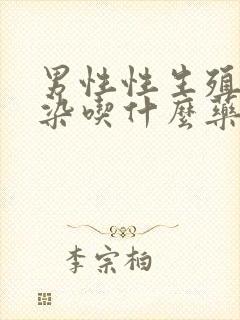 男性性生殖
染喫什麼藥
李宗柏